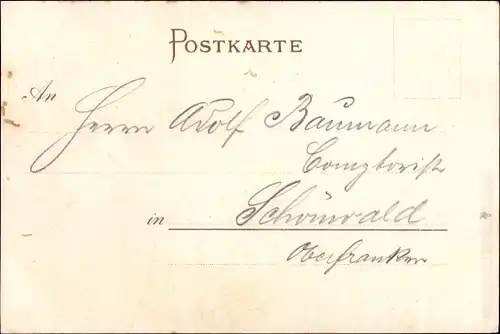 POSTKARTE
An Herrn Adolf Baumann
Comptorist
in Schönwald
Oberfranken